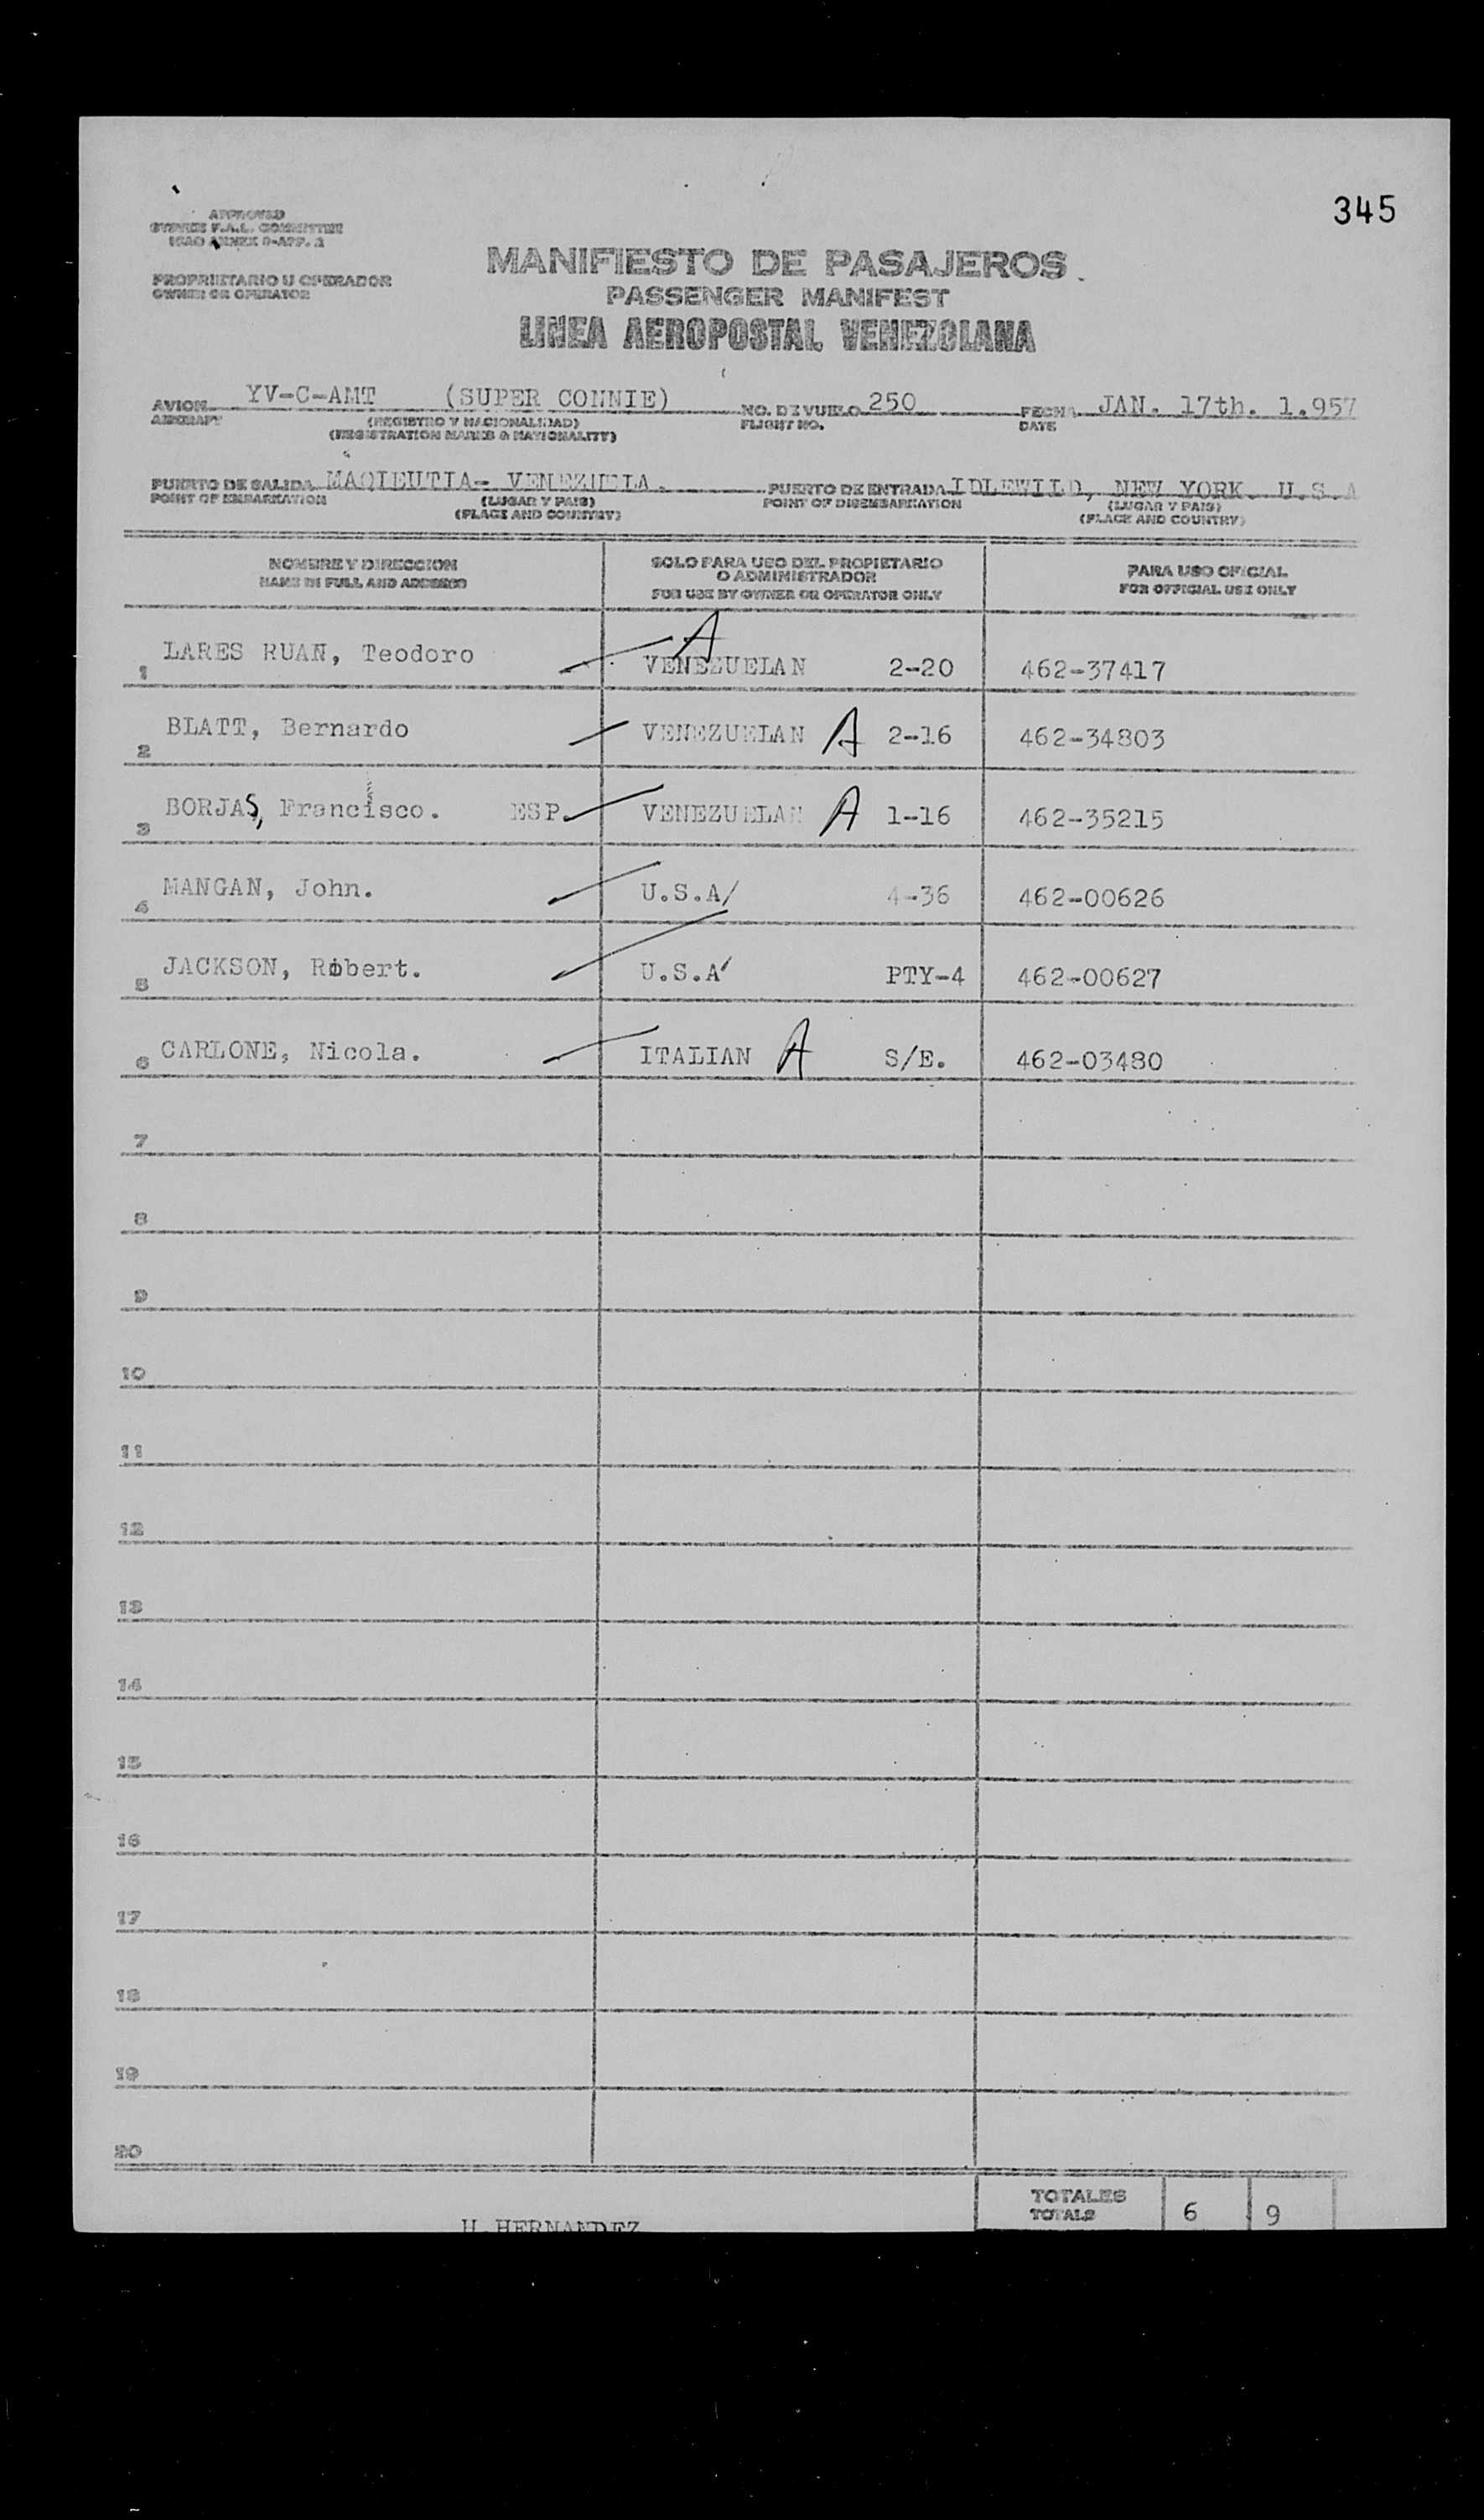 345
APPROVED
SYSTEM F.A.L. COMMITTEE
ICAO ANNEX 9-APP. 2
PROPRIETARIO U OPERADOR
OWNER OR OPERATOR
MANIFIESTO DE PASAJEROS
PASSENGER MANIFEST
LINEA AEROPOSTAL VENEZOLANA
AVION YV-C-AMT (SUPER CONNIE) NO. DE VUELO 250 FECHA JAN. 17th. 1.957
AIRCRAFT (REGISTRO Y NACIONALIDAD) FLIGHT NO. DATE
(REGISTRATION MARKS & NATIONALITY)
PUERTO DE SALIDA MAQIEUTIA- VENEZUELA. PUERTO DE ENTRADA IDLEWILD, NEW YORK. U.S.A
POINT OF EMBARKATION (LUGAR Y PAIS) POINT OF DISEMBARKATION (LUGAR Y PAIS)
(PLACE AND COUNTRY) (PLACE AND COUNTRY)
NOMBRE Y DIRECCION SOLO PARA USO DEL PROPIETARIO PARA USO OFICIAL
NAME IN FULL AND ADDRESS O ADMINISTRADOR FOR OFFICIAL USE ONLY
FOR USE BY OWNER OR OPERATOR ONLY
1 LARES RUAN, Teodoro VENEZUELAN A 2-20 462-37417
2 BLATT, Bernardo VENEZUELAN A 2-16 462-34803
3 BORJAS, Francisco. ESP. VENEZUELAN A 1-16 462-35215
4 MANGAN, John. U.S.A/ 4-36 462-00626
5 JACKSON, Robert. U.S.A PTY-4 462-00627
6 CARLONE, Nicola. ITALIAN A S/E. 462-03480
7
8
9
10
11
12
13
14
15
16
17
18
19
20
TOTALES 6 9
TOTALS
H.HERNANDEZ